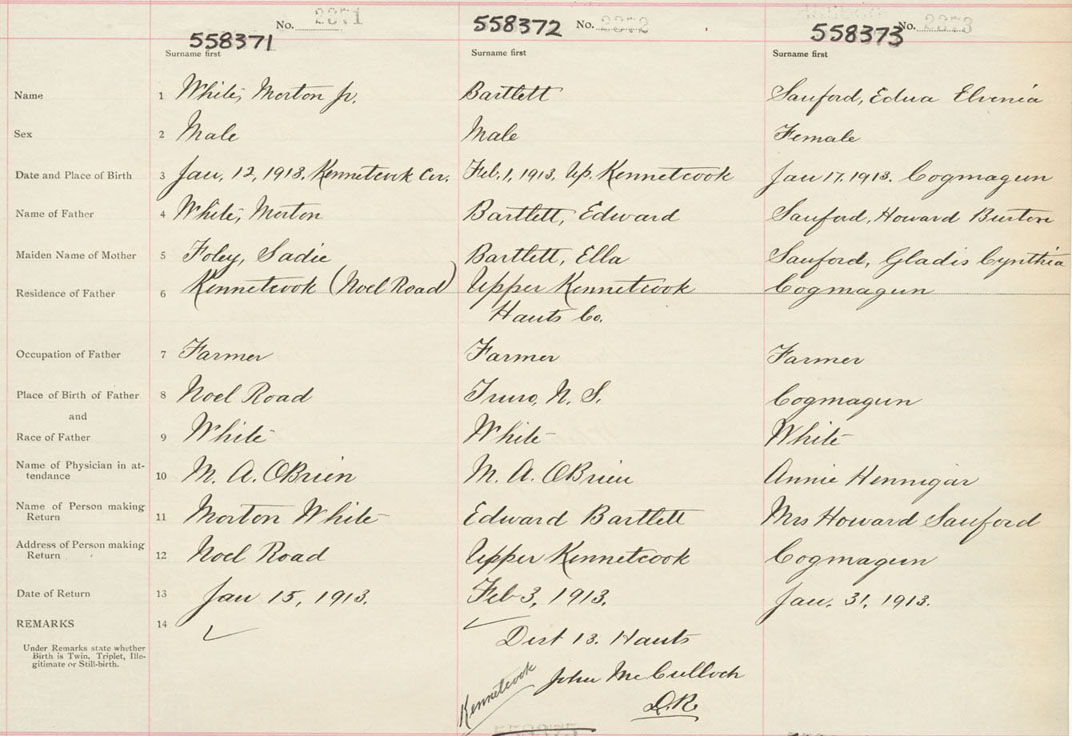 No. 2371 No. 2372 No. 2373
558371 558372 558373
Surname first Surname first Surname first
Name 1 White, Morton Jr. Bartlett Sanford, Edna Elvenia
Sex 2 Male Male Female
Date and Place of Birth 3 Jan. 12, 1913. Kennetcook Cor. Feb. 1, 1913, Up. Kennetcook Jan 17. 1913. Cogmagun
Name of Father 4 White, Morton Bartlett, Edward Sanford, Howard Burton
Maiden Name of Mother 5 Foley, Sadie Bartlett, Ella Sanford, Gladis Cynthia
Residence of Father 6 Kennetcook (Noel Road) Upper Kennetcook Cogmagun
Hants Co.
Occupation of Father 7 Farmer Farmer Farmer
Place of Birth of Father 8 Noel Road Truro, N. S. Cogmagun
and
Race of Father 9 White White White
Name of Physician in at-
tendance 10 M. A. O'Brien M. A. O'Brien Annie Hennigar
Name of Person making
Return 11 Morton White Edward Bartlett Mrs Howard Sanford
Address of Person making
Return 12 Noel Road Upper Kennetcook Cogmagun
Date of Return 13 Jan 15, 1913. Feb 3, 1913. Jan. 31, 1913.
REMARKS 14
Under Remarks state whether
Birth is Twin, Triplet, Ille-
gitimate or Still-birth.
Dist 13. Hants
Kennetcook John McCulloch
D.R.